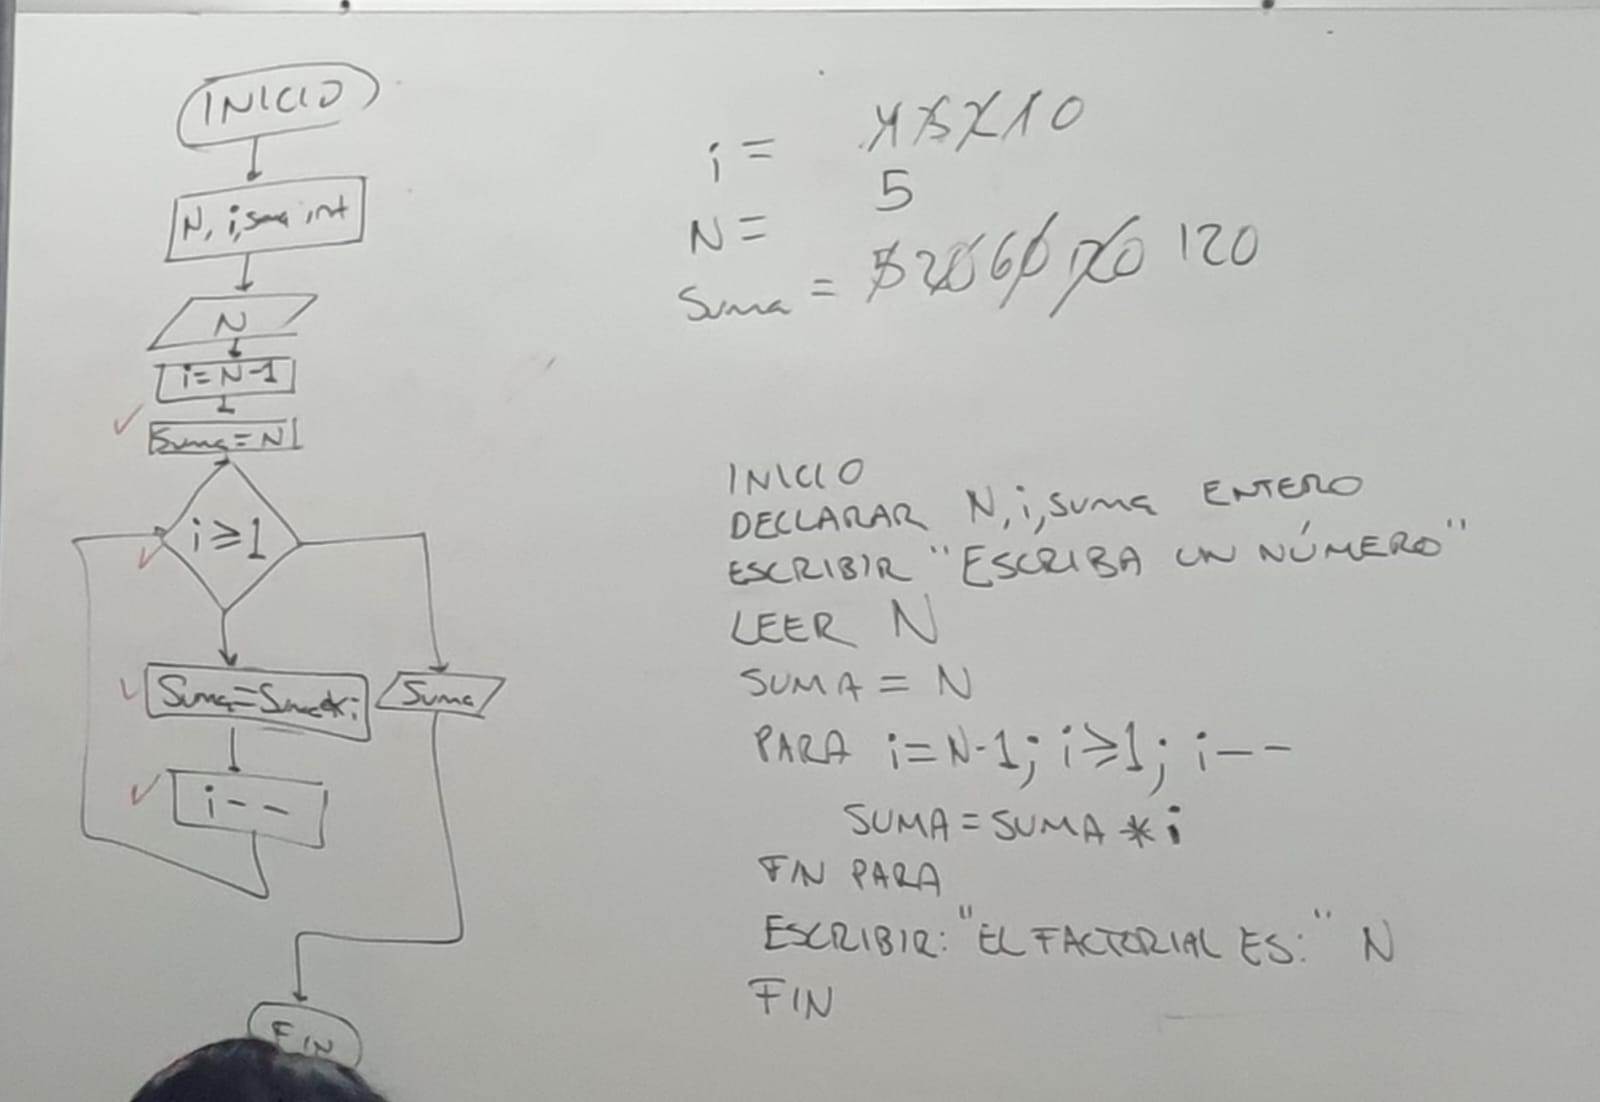 INICIO
N, i, suma int
N
i=N-1
Suma=N
i≥1
Suma=Suma*i
Suma
i--
FIN
i= 4 3 2 1 0
N= 5
Suma = 5 20 60 120 120
INICIO
DECLARAR N, i, suma ENTERO
ESCRIBIR "ESCRIBA UN NÚMERO"
LEER N
SUMA = N
PARA i=N-1; i≥1; i--
SUMA = SUMA * i
FIN PARA
ESCRIBIR: "EL FACTORIAL ES:" N
FIN